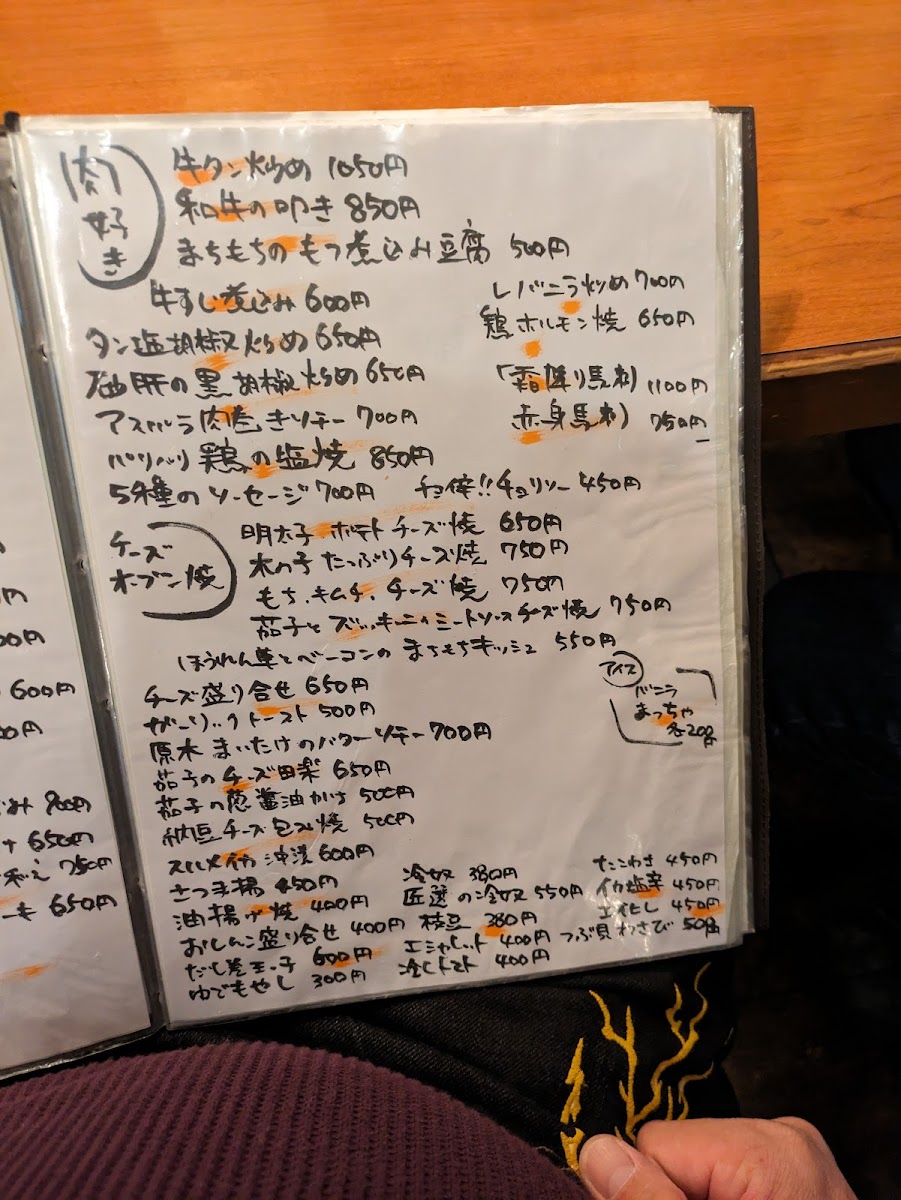 肉好き
牛タン炒め 1050円
和牛の叩き 850円
まちもちのもつ煮込み豆腐 500円
牛すじ煮込み 600円
レバニラ炒め 700円
タン塩胡椒炒め 650円
鶏ホルモン焼 650円
砂肝の黒胡椒炒め 650円
「霜降り馬刺 1100円
アスパラ肉巻きソテー 700円
赤身馬刺 750円
パリパリ鶏の塩焼 850円
5種のソーセージ 700円 チョ倖!!チョリソー 450円
チーズオーブン焼
明太子ポテトチーズ焼 650円
木の子たっぷりチーズ焼 750円
もち、キムチ、チーズ焼 750円
茄子とズッキーニのミートソースチーズ焼 750円
ほうれん草とベーコンのまちもちキッシュ 550円
アイス
バニラ
まっちゃ
各200円
チーズ盛り合せ 650円
ガーリックトースト 500円
原木まいたけのバターソテー 700円
茄子のチーズ田楽 650円
茄子の葱醤油かけ 500円
納豆チーズ包み焼 500円
スルメイカ沖漬 600円
さつま揚 450円
油揚げ焼 400円
おしんこ盛り合せ 400円
だし巻玉子 600円
ゆでもやし 300円
冷奴 380円
匠選の冷奴 550円
枝豆 380円
エシャレット 400円
冷しトマト 400円
たこわさ 450円
イカ塩辛 450円
エイヒレ 450円
つぶ貝わさび 500円
600円
650円
750円
650円